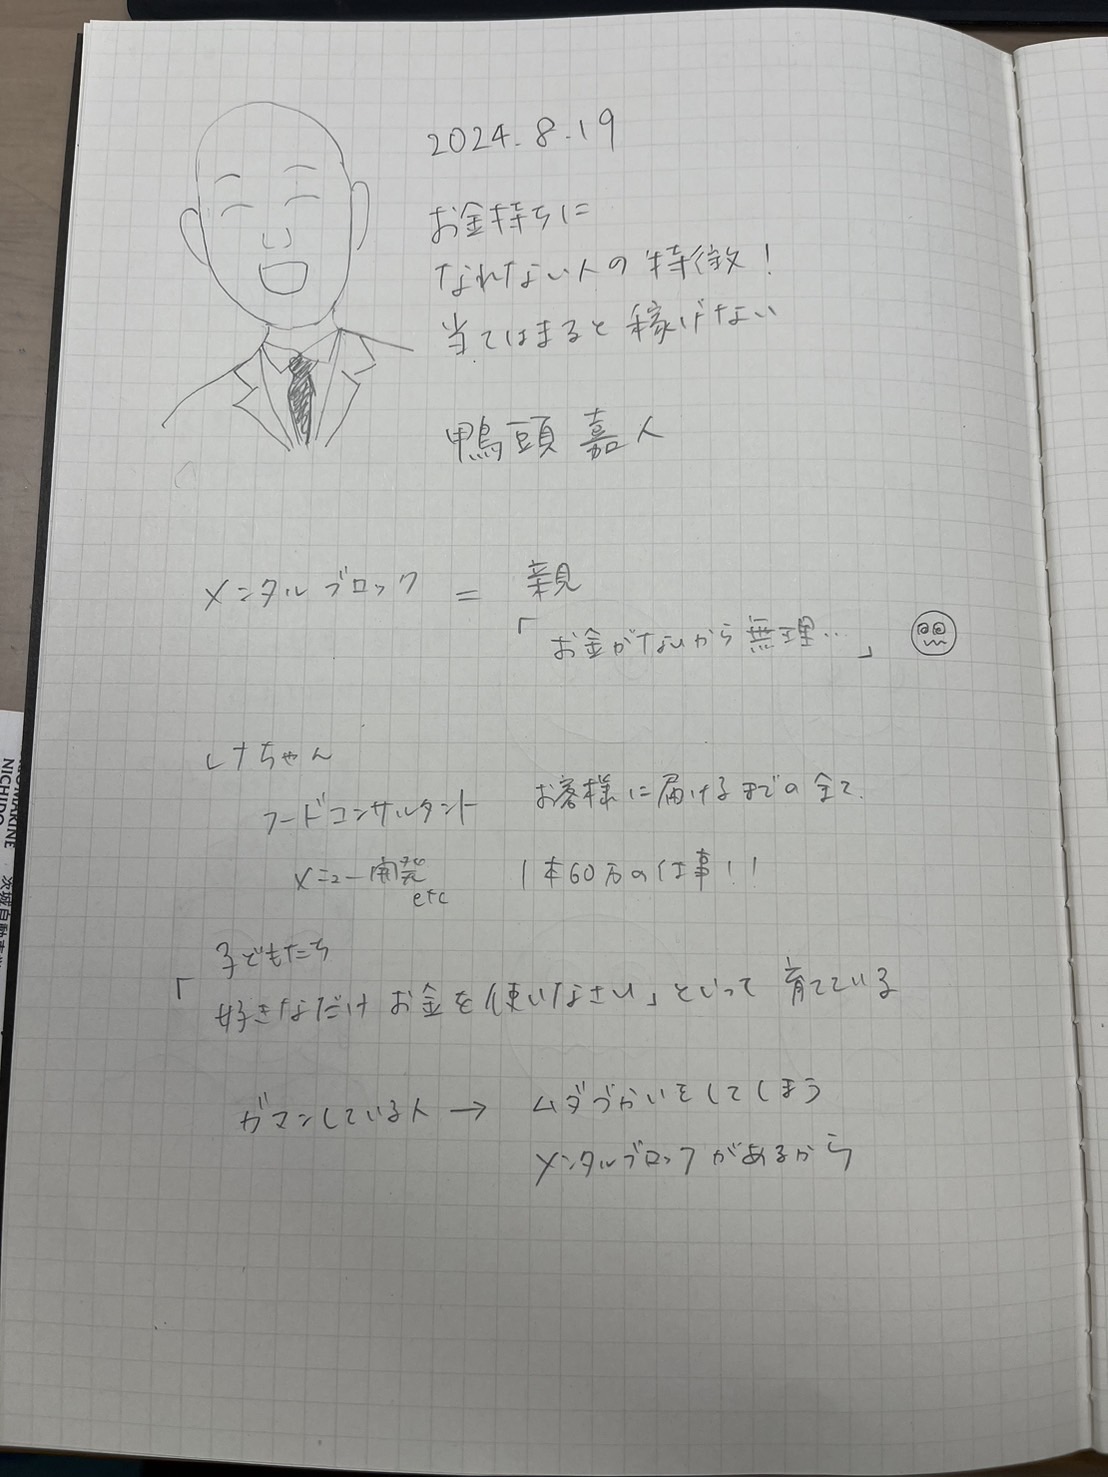 2024.8.19
お金持ちに
なれない人の特徴!
当てはまると稼げない
鴨頭 嘉人
メンタルブロック = 親
「お金がないから無理…」
レナちゃん
フードコンサルタント お客様に届けるまでの全て.
メニュー開発 etc 1本60万の仕事!!
子どもたち
「好きなだけお金を使いなさい」といって育てている
ガマンしている人 → ムダづかいをしてしまう
メンタルブロックがあるから
NICHIDO
茨城自動車